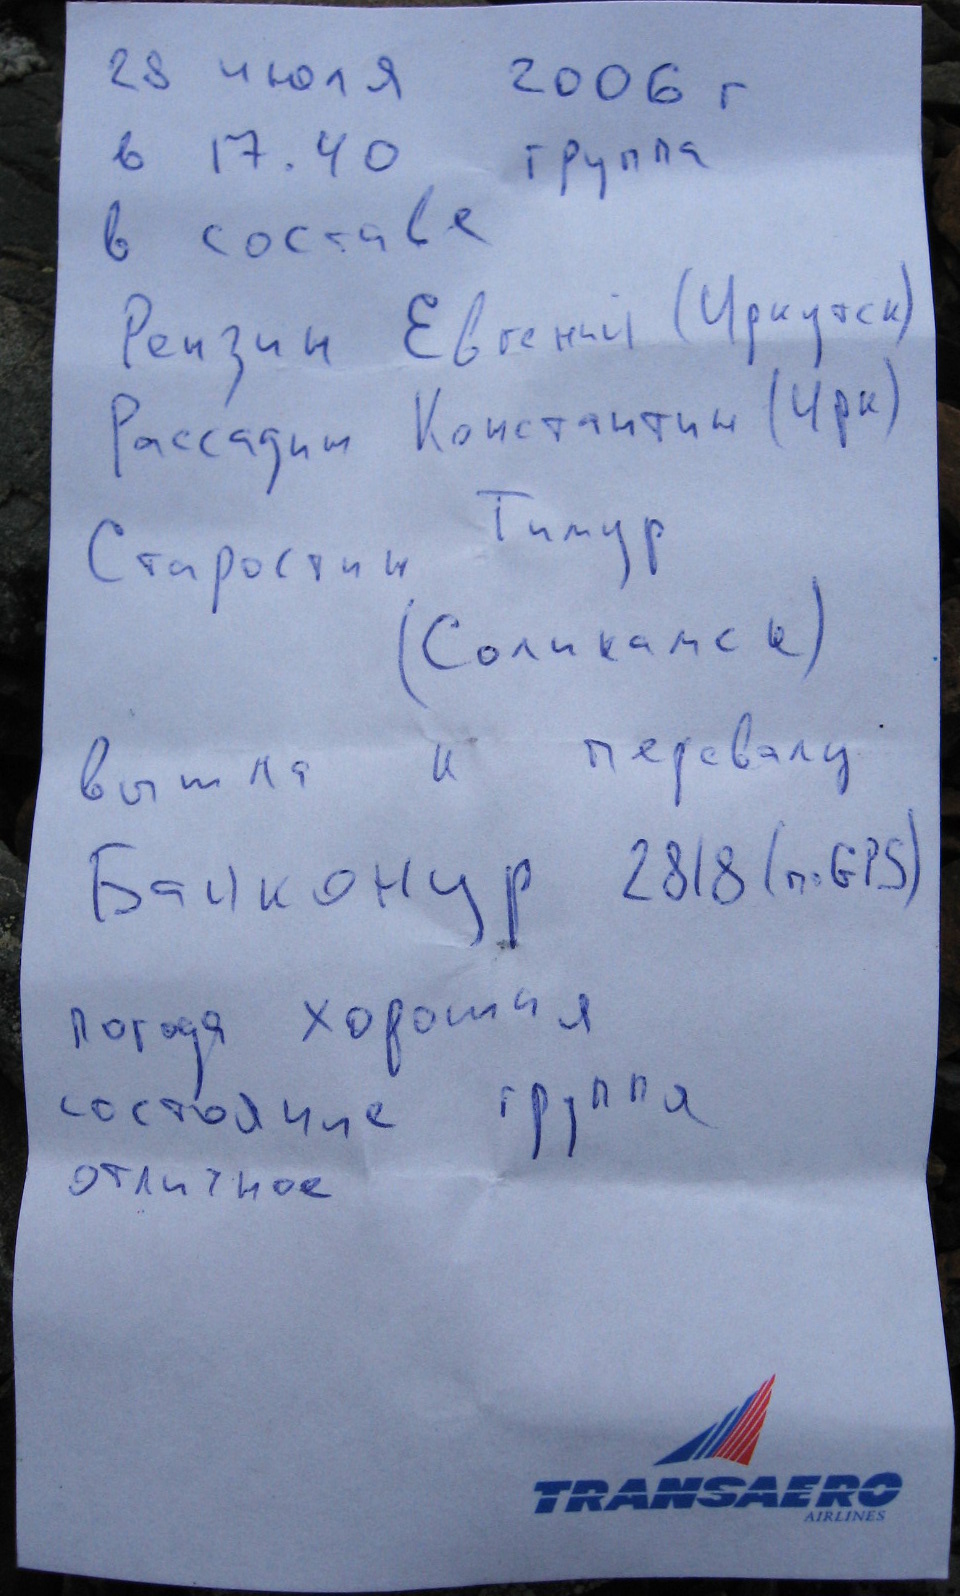 28 июля 2006 г
в 17.40 группа
в составе
Рензин Евгений (Иркутск)
Рассадин Константин (Ирк)
Старостин Тимур
(Соликамск)
вышла к перевалу
Байконур 2818 (по GPS)
погода хорошая
состояние группа
отличное
TRANSAERO
AIRLINES